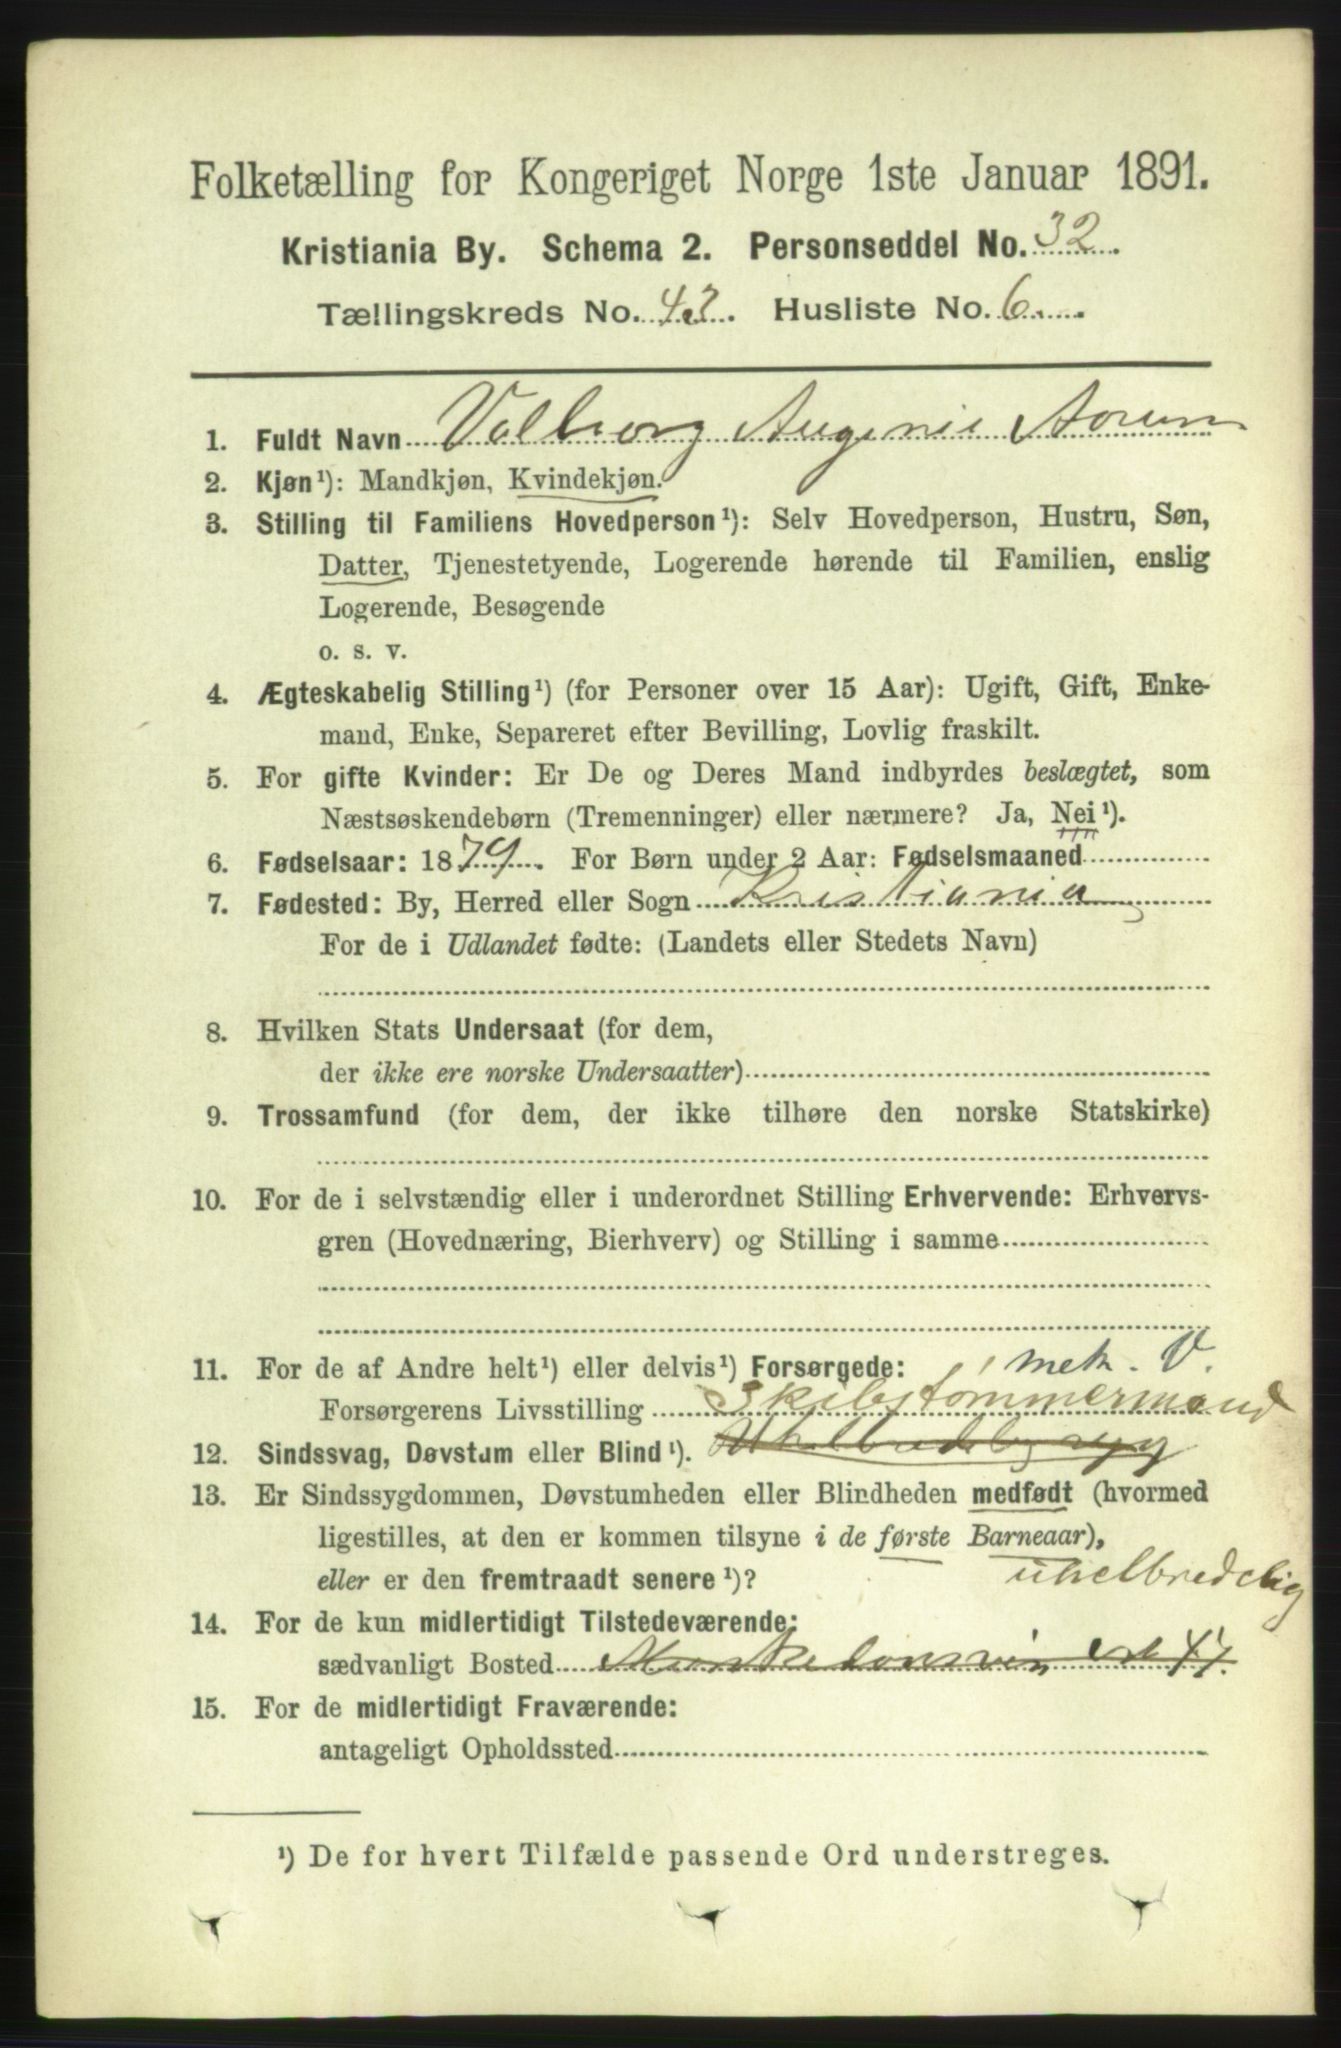 Folketælling for Kongeriget Norge 1ste Januar 1891.
Kristiania By. Schema 2. Personseddel No. 32.
Tællingskreds No. 43. Husliste No. 6.
1. Fuldt Navn Valborg Augenie Aorum
2. Kjøn¹): Mandkjøn, Kvindekjøn.
3. Stilling til Familiens Hovedperson¹): Selv Hovedperson, Hustru, Søn,
Datter, Tjenestetyende, Logerende hørende til Familien, enslig
Logerende, Besøgende
o. s. v.
4. Ægteskabelig Stilling¹) (for Personer over 15 Aar): Ugift, Gift, Enke-
mand, Enke, Separeret efter Bevilling, Lovlig fraskilt.
5. For gifte Kvinder: Er De og Deres Mand indbyrdes beslægtet, som
Næstsøskendebørn (Tremenninger) eller nærmere? Ja, Nei¹).
6. Fødselsaar: 1879. For Børn under 2 Aar: Fødselsmaaned
7. Fødested: By, Herred eller Sogn Kristiania
For de i Udlandet fødte: (Landets eller Stedets Navn)
8. Hvilken Stats Undersaat (for dem,
der ikke ere norske Undersaatter)
9. Trossamfund (for dem, der ikke tilhøre den norske Statskirke)
10. For de i selvstændig eller i underordnet Stilling Erhvervende: Erhvervs-
gren (Hovednæring, Bierhverv) og Stilling i samme
11. For de af Andre helt¹) eller delvis¹) Forsørgede: mek. V.
Forsørgerens Livsstilling Skibstømmermand
12. Sindssvag, Døvstum eller Blind¹).
13. Er Sindssygdommen, Døvstumheden eller Blindheden medfødt (hvormed
ligestilles, at den er kommen tilsyne i de første Barneaar),
eller er den fremtraadt senere¹)? uhelbredelig
14. For de kun midlertidigt Tilstedeværende:
sædvanligt Bosted 47.
15. For de midlertidigt Fraværende:
antageligt Opholdssted
¹) De for hvert Tilfælde passende Ord understreges.